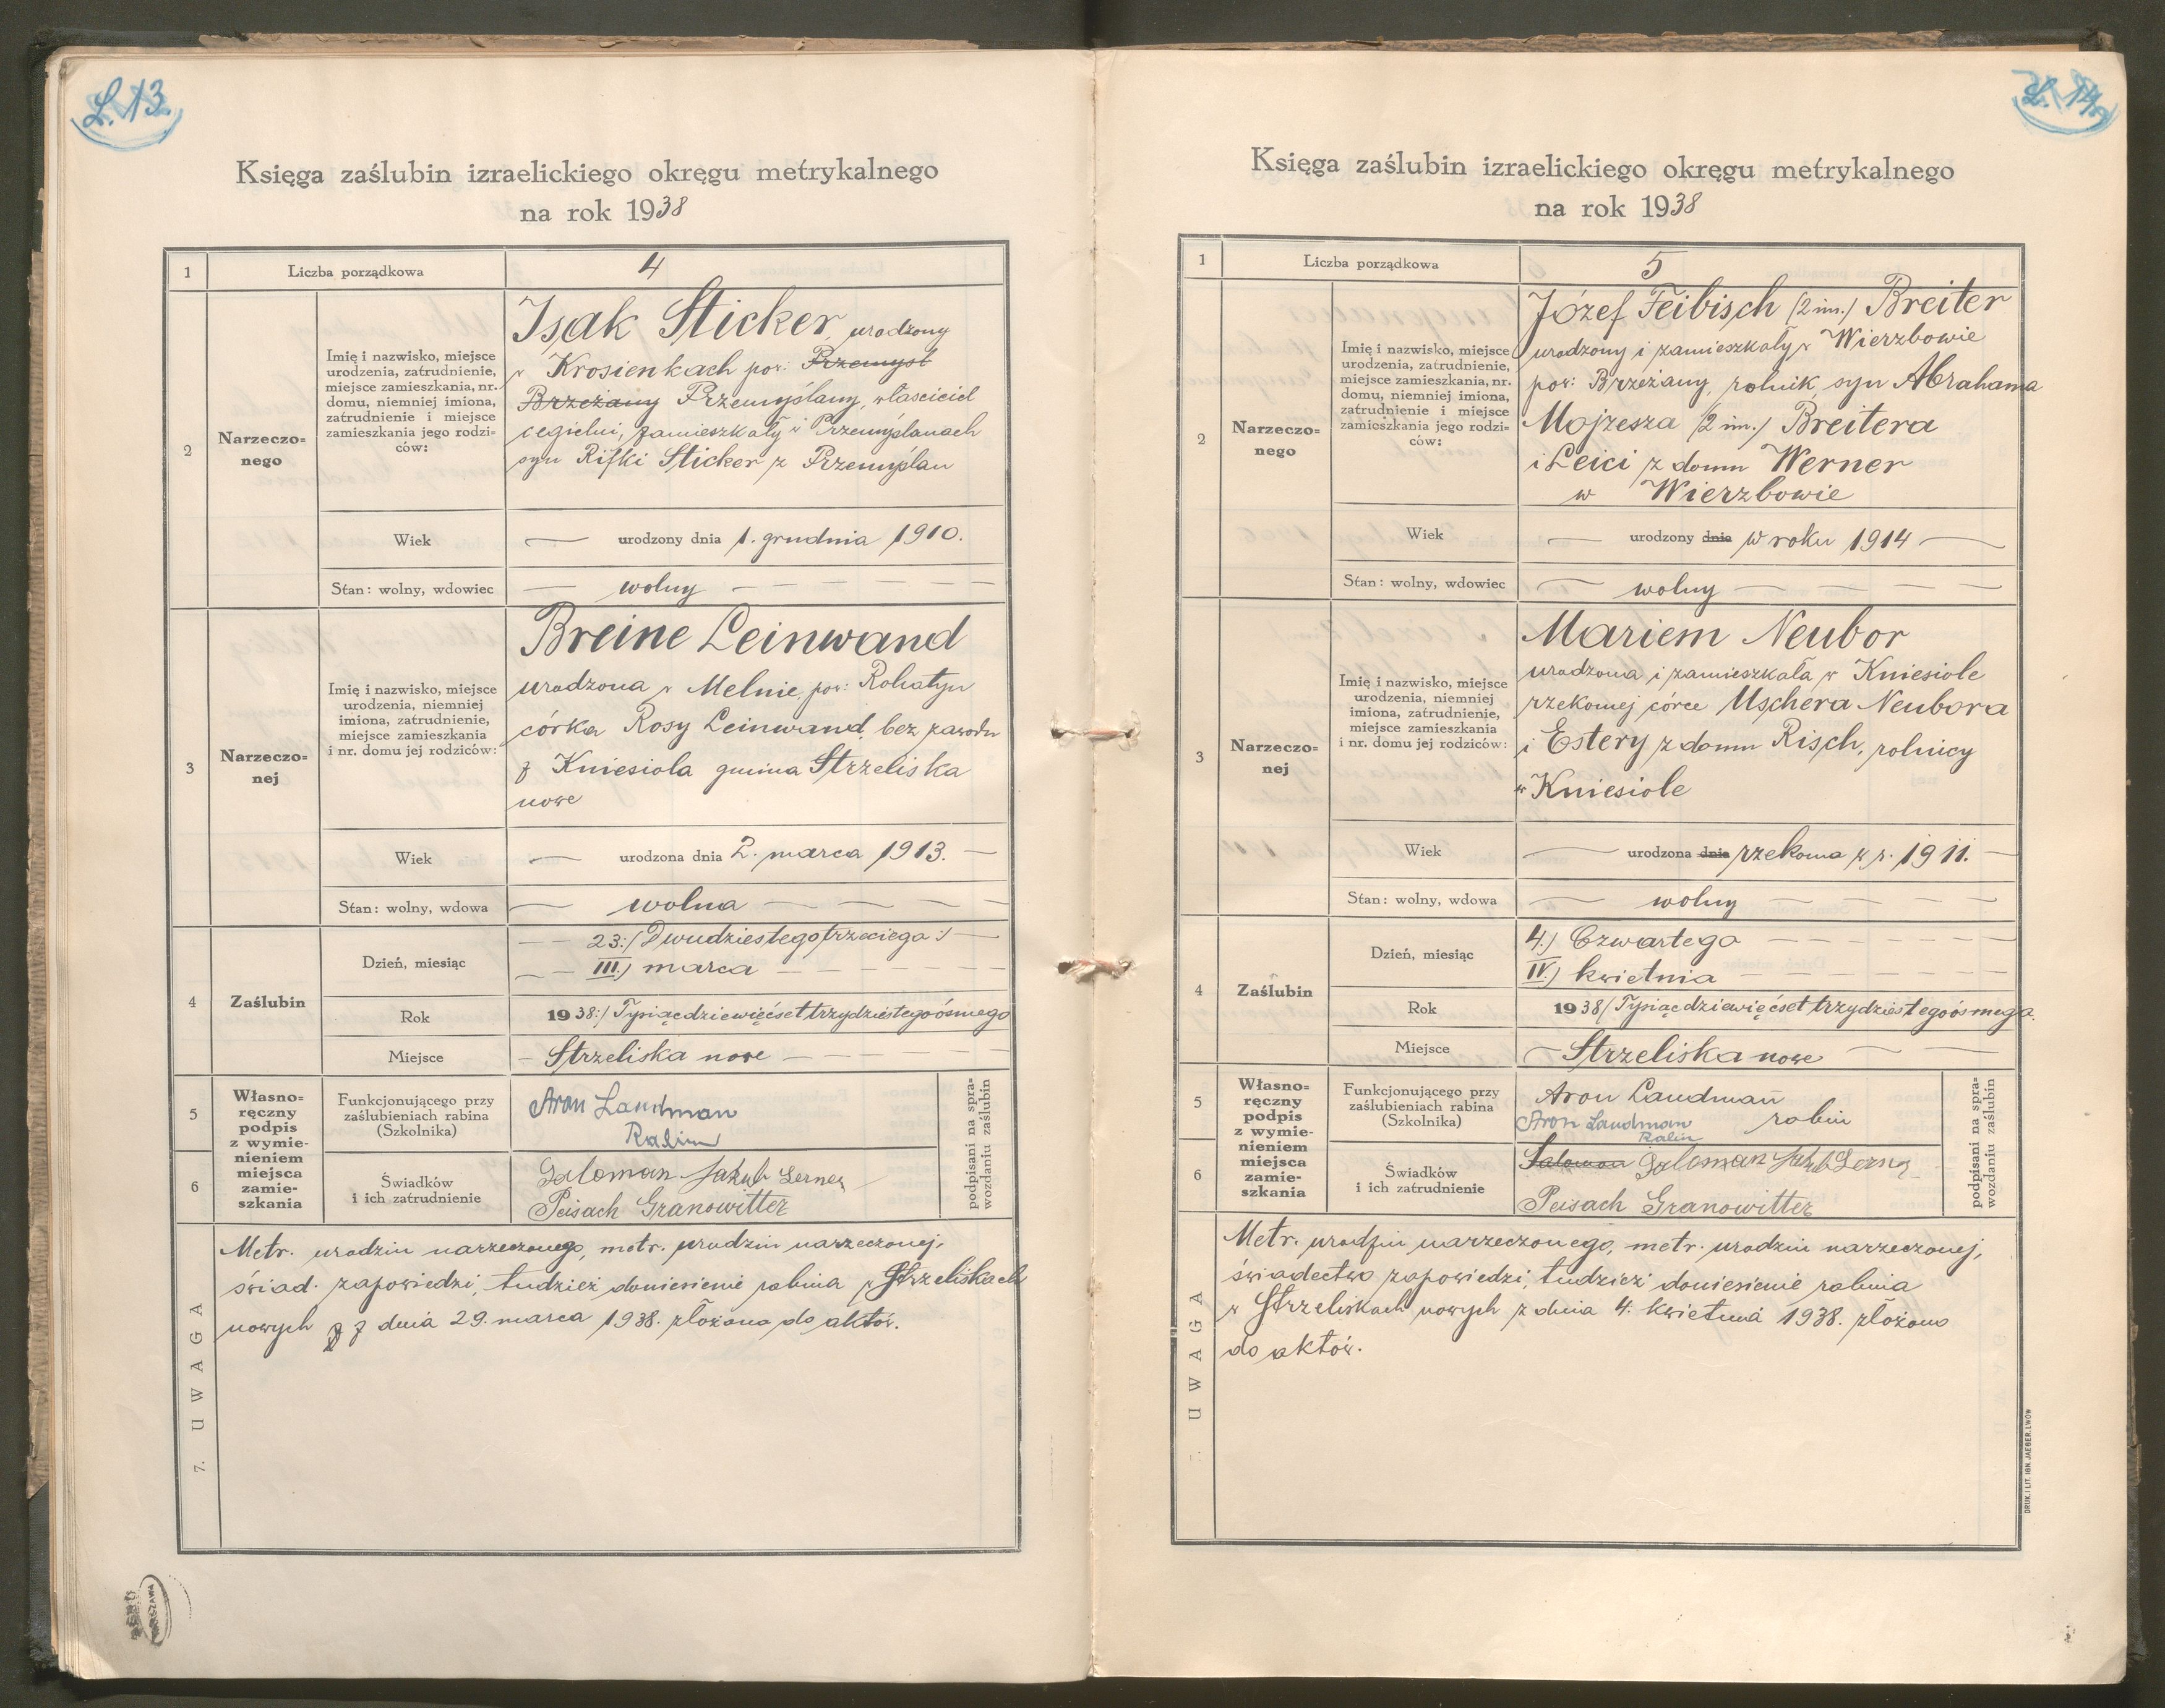 L. 13.
Księga zaślubin izraelickiego okręgu metrykalnego
na rok 1938
1 Liczba porządkowa 4
2 Narzeczo=
nego
Imię i nazwisko, miejsce
urodzenia, zatrudnienie,
miejsce zamieszkania, nr.
domu, niemniej imiona,
zatrudnienie i miejsce
zamieszkania jego rodzi-
ców:
Isak Sticker, urodzony
w Krosienkach pow: Przemyśl
Brzeżany Przemyślany, właściciel
cegielni, zamieszkały w Przemyślanach
syn Rifki Sticker z Przemyślan
Wiek — urodzony dnia 1. grudnia 1910.
Stan: wolny, wdowiec — wolny — — — — —
3 Narzeczo=
nej
Imię i nazwisko, miejsce
urodzenia, niemniej
imiona, zatrudnienie,
miejsce zamieszkania
i nr. domu jej rodziców:
Breine Leinwand
urodzona w Melnie, pow: Rohatyn
córka Rosy Leinwand, bez zawodu
z Kniesioła gmina Strzeliska
nowe
Wiek — urodzona dnia 2. marca 1913. —
Stan: wolny, wdowa — wolna — — — —
4 Zaślubin
Dzień, miesiąc — — 23:/ Dwudziestego trzeciego :/ —
— — III.) marca — — — — —
Rok 1938:/ Tysiącdziewięćsettrzydziestegoósmego
Miejsce — Strzeliska nowe — — — — —
5
6
Własno=
ręczny
podpis
z wymie-
nieniem
miejsca
zamie-
szkania
Funkcjonującego przy
zaślubieniach rabina
(Szkolnika)
Aron Landman
Rabin
Świadków
i ich zatrudnienie
Saloman Jakub Lerner
Peisach Granowitter
podpisani na spra-
wozdaniu zaślubin
7. UWAGA
Metr. urodzin narzeczonego, metr. urodzin narzeczonej,
świad. zapowiedzi, tudzież doniesienie rabina w Strzeliskach
nowych z z dnia 29. marca 1938. złożono do aktów.
WARSZAWA
L. 14
Księga zaślubin izraelickiego okręgu metrykalnego
na rok 1938
1 Liczba porządkowa 5
2 Narzeczo=
nego
Imię i nazwisko, miejsce
urodzenia, zatrudnienie,
miejsce zamieszkania, nr.
domu, niemniej imiona,
zatrudnienie i miejsce
zamieszkania jego rodzi-
ców:
Józef Feibisch (2 im.) Breiter
urodzony i zamieszkały w Wierzbowie
pow: Brzeżany, rolnik, syn Abrahama
Mojżesza (2 im.) Breitera
i Leici z domu Werner
w Wierzbowie
Wiek — urodzony dnia w roku 1914 —
Stan: wolny, wdowiec — wolny — — —
3 Narzeczo=
nej
Imię i nazwisko, miejsce
urodzenia, niemniej
imiona, zatrudnienie,
miejsce zamieszkania
i nr. domu jej rodziców:
Mariem Neubor
urodzona i zamieszkała w Kniesiole
rzekomej córce Uschera Neubora
i Estery z domu Risch, rolnicy
w Kniesiole
Wiek — urodzona dnia rzekoma w r. 1911. —
Stan: wolny, wdowa — wolny — — —
4 Zaślubin
Dzień, miesiąc 4.) Czwartego — — — — —
IV.) kwietnia — — — — —
Rok 1938/ Tysiącdziewięćsettrzydziestegoósmego.
Miejsce — Strzeliska nowe — —
5
6
Własno=
ręczny
podpis
z wymie-
nieniem
miejsca
zamie-
szkania
Funkcjonującego przy
zaślubieniach rabina
(Szkolnika)
Aron Landman
rabin
Aron Landman
Rabin
Świadków
i ich zatrudnienie
Salomon Saloman Jakub Lerner
Peisach Granowitter
podpisani na spra-
wozdaniu zaślubin
UWAGA
Metr. urodzin narzeczonego, metr. urodzin narzeczonej,
świadectwo zapowiedzi, tudzież doniesienie rabina
w Strzeliskach nowych z dnia 4. kwietnia 1938. złożono
do aktów.
DRUK. I LIT. IGN. JAEGER, LWÓW